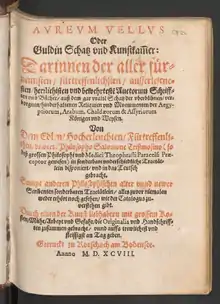 AVREVM VELLVS
Oder
Guldin Schatz vnd Kunstkam̃er:
Darinnen der aller für-
nemisten, fürtreffenlichsten, außerlese-
nesten, herrlichisten vnd bewehrtesten Auctorum Schriff-
ten vnd Bücher, auß dem gar vralten Schatz der vberblibnen, ver-
borgnen, hinderhaltenen Reliquien vnd Monumenten der Aegyp-
tiorum, Arabum, Chaldæorum & Assyriorum
Königen vnd Weysen.
Von
Dem Edlen, Hocherleuchten, Fürtreffenli-
chen, bewerten Philosopho Salomone Trismosino, (so
deß grossen Philosophi vnd Medici Theophrasti Paracelsi Præ-
ceptor gewesen) in sonderbare vnderschiedliche Tractät-
lein disponiert, vnd in das Teutsch
gebracht.
Sampt anderen Philosophischen alter vnnd newer
Scribenten sonderbaren Tractätlein, alles zuvor niemalen
weder erhört noch gesehen, wie der Catalogus zu-
verstehen gibt.
Durch einen der Kunst liebhabern mit grossem Ko-
sten, Mühe, Arbeyt vnd Gefahr, die Originalia vnd Handtschriff-
ten zusammen gebracht, vnd auffs trewlichest vnd
fleissigest an Tag geben.
Getruckt zu Rorschach am Bodensee,
Anno M. D. XCVIII.